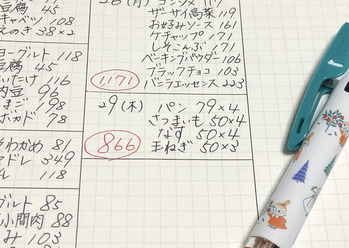 キャベツ 108
えのき 38×2
ヨーグルト 118
豆腐 45
しいたけ 116
納豆 96
たまご 198
アボカド 78
わかめ 81
349
118
ヨーグルト 85
小間肉 88
み 103
ザーサイ高菜 119
お好みソース 161
ケチャップ 171
しそこんぶ 171
ベーキングパウダー 106
ブラックチョコ 103
バニラエッセンス 223
1171
29(木) パン 79×4
さつまいも 50×4
なす 50×4
玉ねぎ 50×3
866